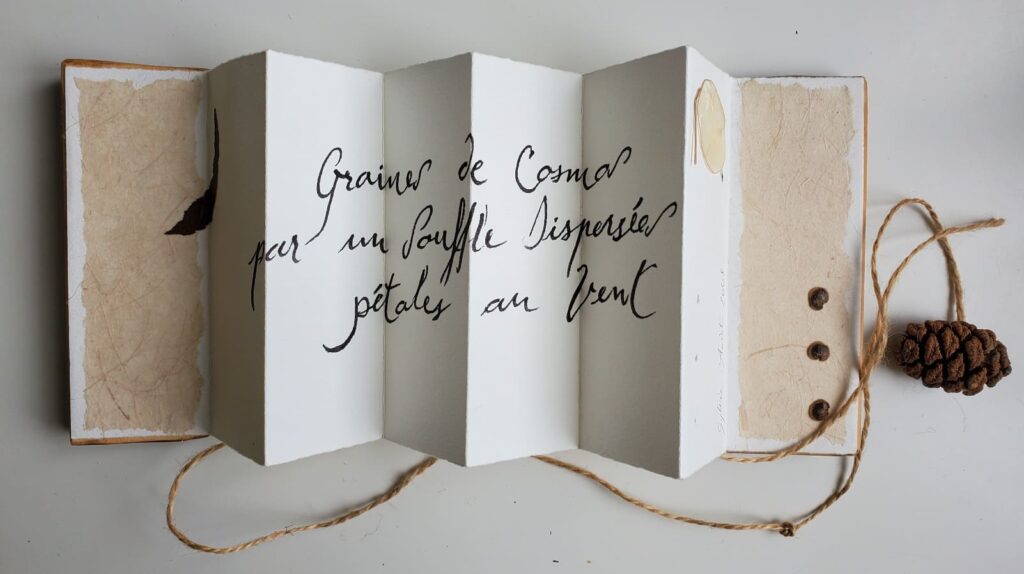 Graines de Cosmos
par un Souffle Dispersées
pétales au Vent